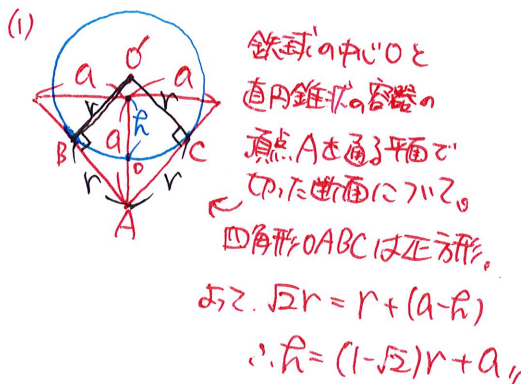 (1)
O
a a
r r
h
B a D C
r r
A
鉄球の中心Oと
直円錐状の容器の
頂点Aを通る平面で
切った断面について。
四角形OABCは正方形。
よって、√2r = r + (a-h)
∴h = (1-√2)r + a 〃